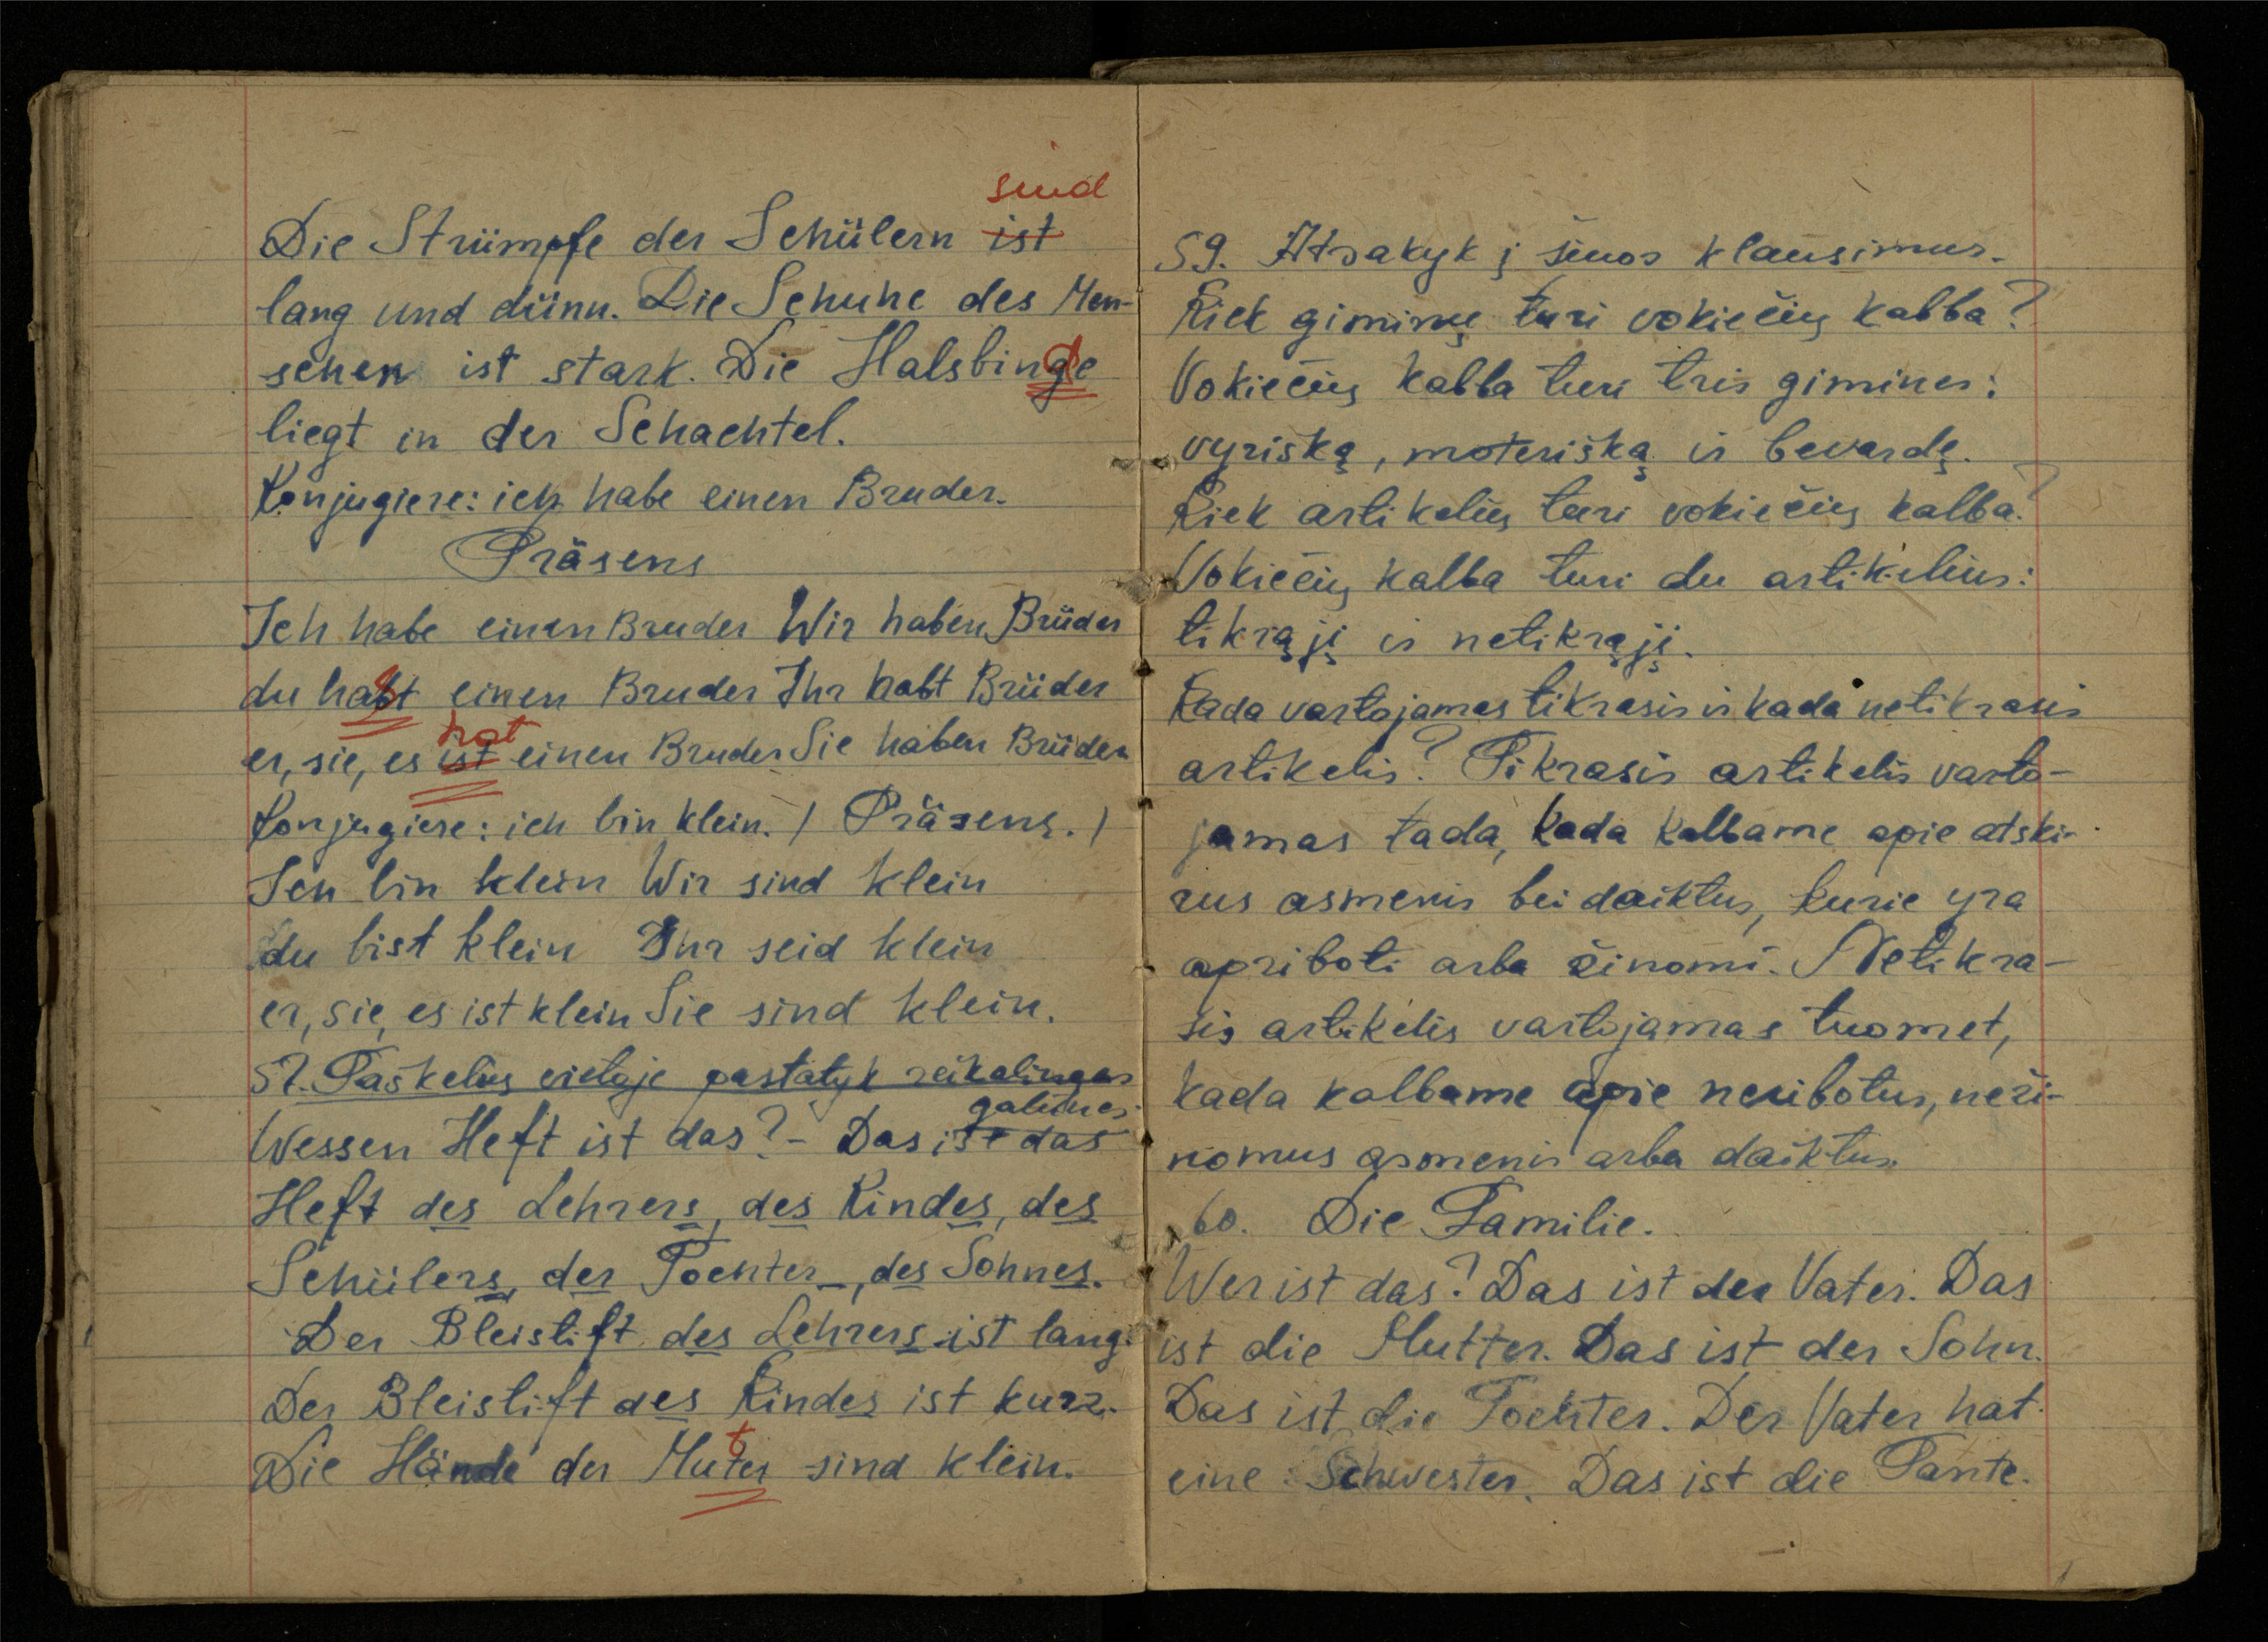 sind
Die Strümpfe der Schülern ist
lang und dünn. Die Schuhe des Men-
schen ist stark. Die Halsbinde
liegt in der Schachtel.
Konjugiere: ich habe einen Bruder.
Präsens
Ich habe einen Bruder Wir haben Brüder
du hast einen Bruder Ihr habt Brüder
hat
er, sie, es ist einen Bruder Sie haben Brüder
Konjugiere: ich bin klein. / Präsens. /
Ich bin klein Wir sind klein
du bist klein Ihr seid klein
er, sie, es ist klein Sie sind klein.
57. Taškelių vietoje pastatyk reikalingas
galūnes.
Wessen Heft ist das? - Das ist das
Heft des Lehrers, des Kindes, des
Schülers, der Tochter _, des Sohnes.
Der Bleistift des Lehrers ist lang.
Der Bleistift des Kindes ist kurz.
t
Die Hände der Muter sind klein.
59. Atsakyk į šiuos klausimus.
Kiek giminių turi vokiečių kalba?
Vokiečių kalba turi tris gimines:
vyrišką, moterišką ir bevardę.
Kiek artikelių turi vokiečių kalba?
Vokiečių kalba turi du artikelius:
tikrąjį ir netikrąjį.
Kada vartojamas tikrasis ir kada netikrasis
artikelis? Tikrasis artikelis varto-
jamas tada, kada kalbame apie atski-
rus asmenis bei daiktus, kurie yra
apriboti arba žinomi. Netikra-
sis artikelis vartojamas tuomet,
kada kalbame apie neribotus, neži-
nomus asmenis arba daiktus.
60. Die Familie.
Wer ist das? Das ist der Vater. Das
ist die Mutter. Das ist der Sohn.
Das ist die Tochter. Der Vater hat
eine Schwester. Das ist die Tante.